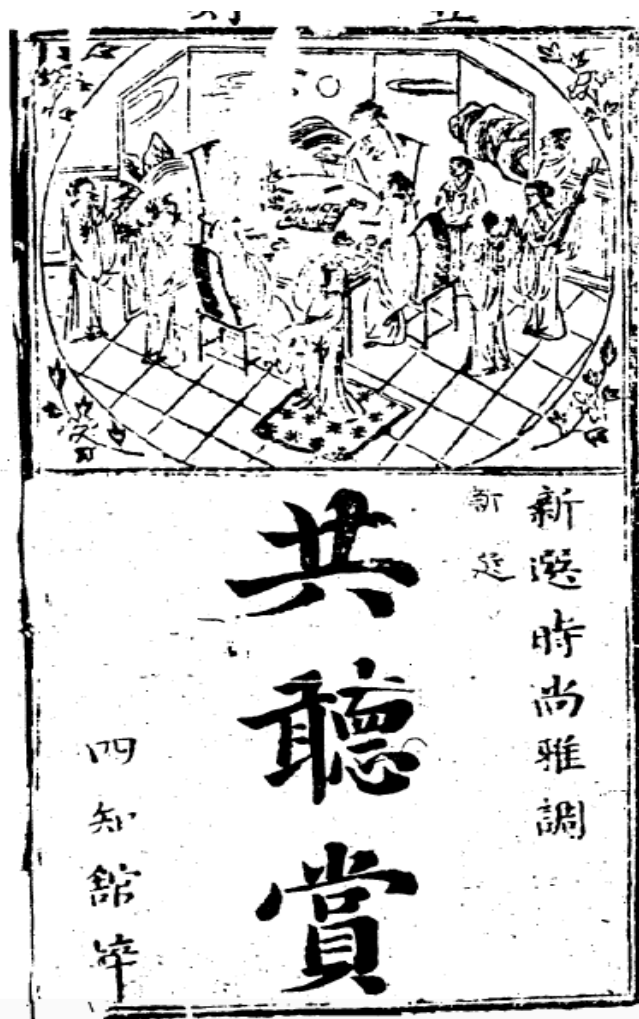 新選時尚雅調
新
共聽賞
四知館梓